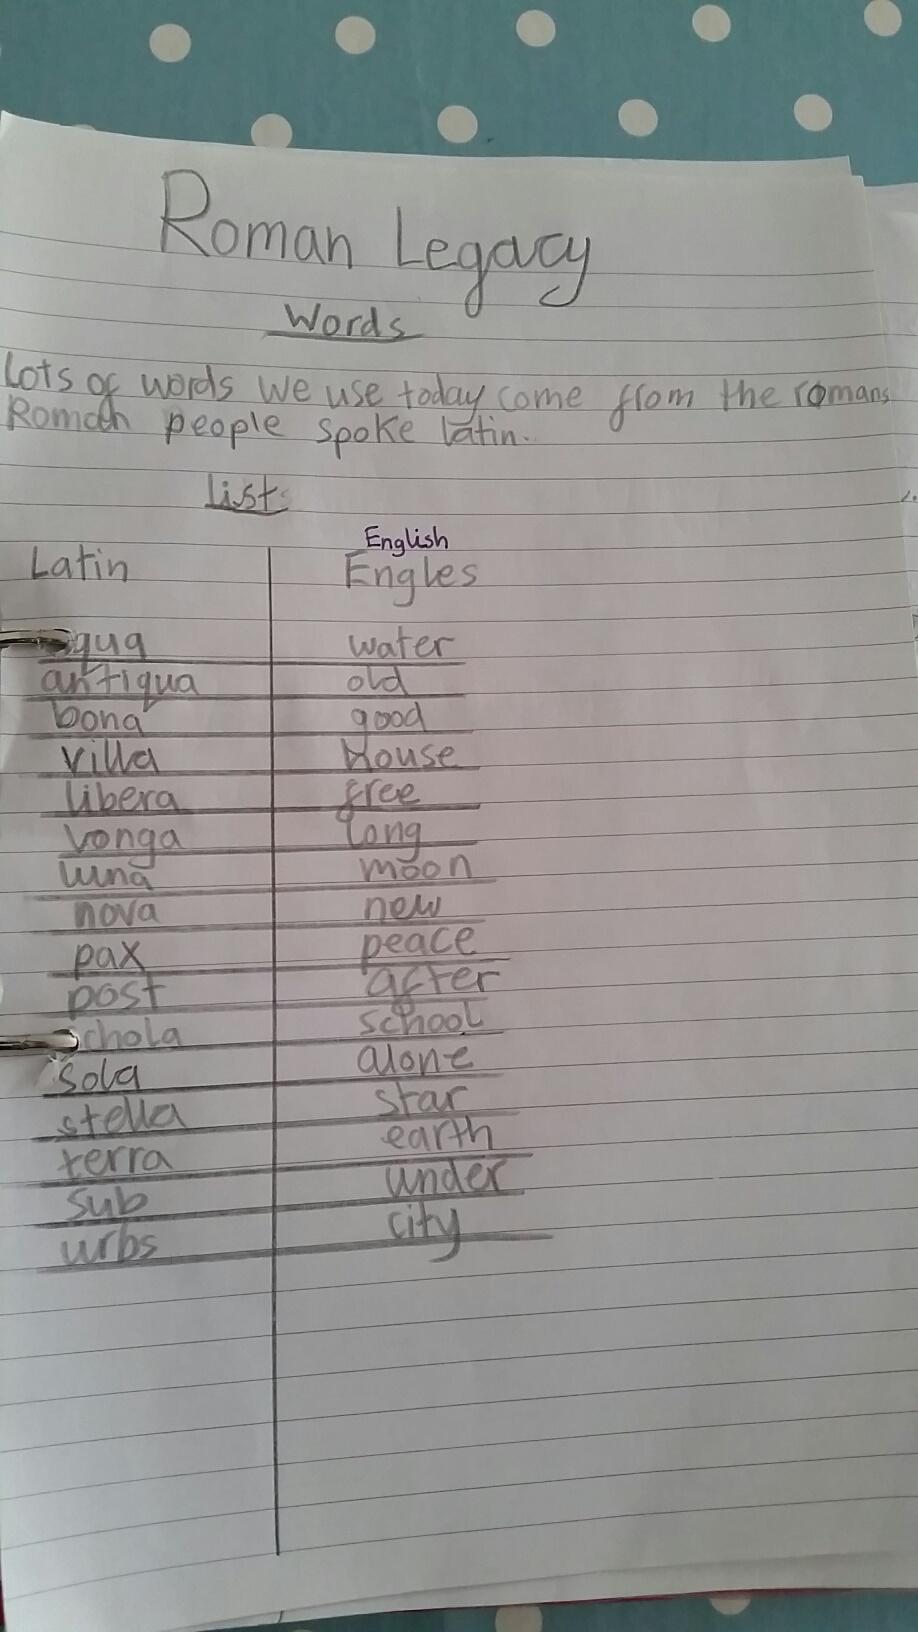 Roman Legacy
Words
Lots of words we use today come from the romans
Roman people spoke latin.
List
English
Latin Engles
aqua water
antiqua old
bona good
villa house
libera free
longa long
luna moon
nova new
pax peace
post after
schola school
sola alone
stella star
terra earth
sub under
urbs city